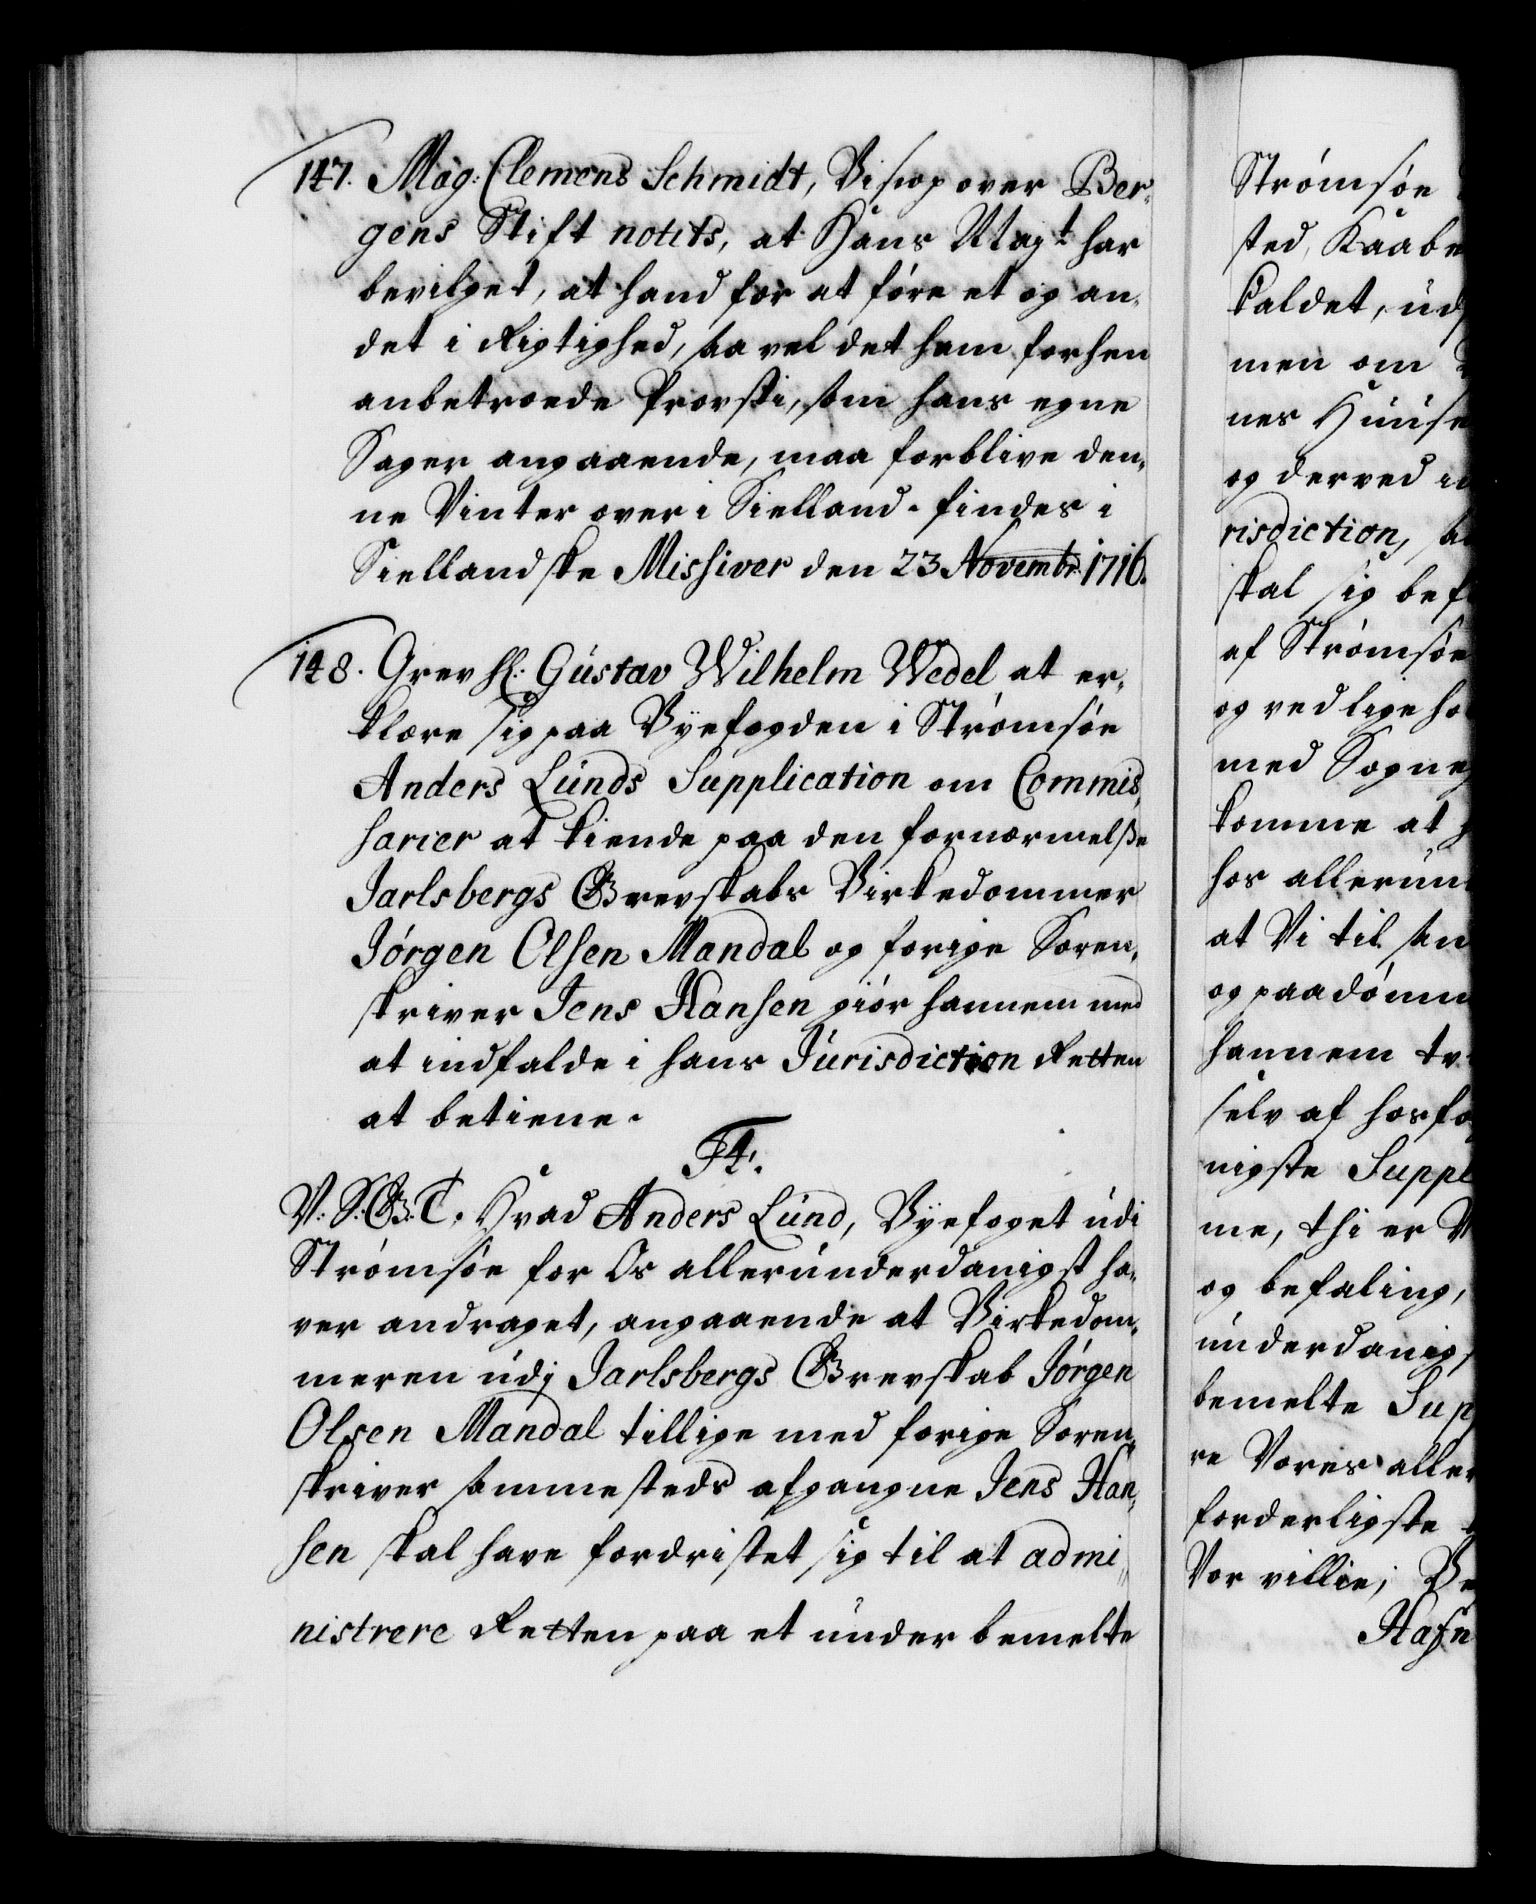 147. Mag: Clemens Schmidt, Biscop over Ber-
gens Stift notits, at Hans Mayt. har
bevilget, at hand for at føre et og an-
det i Rigtighed, saavel det ham forhen
anbetroede Provsti, som hans egne
Sager angaaende, maa forblive den-
ne Vinter over i Sielland. findes i
Siellandske Missiver den 23 Novembr. 1716.
148. Grev H: Gustav Wilhelm Wedel at er-
klære sig paa Byefogden i Strømsøe
Anders Lunds Supplication om Commis-
sarier at kiende paa den fornærmelsse
Jarlsbergs Grevskabs Birkedommer
Jørgen Olsen Mandal og forige Soren-
skriver Jens Hansen giør hannem med
at indfalde i hans Jurisdiction Retten
at betiene.
F4.
V: S: G. T. Hvad Anders Lund, Byefoget udi
Strømsøe for Os allerunderdanigst ha-
ver andraget, angaaende at Birkedom-
meren udj Jarlsbergs Grevskab Jørgen
Olsen Mandal tillige med forige Soren-
skriver sammesteds afgangne Jens Han-
sen skal have fordristet sig til at admi-
nistrere Retten paa et under bemelte
Strømsøe
sted, Kaabe
kaldet, ud
men om
nes Huuse
og derved i
risdiction, sa
skal sig bef
af Strømsøe
og vedlige ho
med Sogne
komme at
hos allerun
at Vi til san
og paadømm
hannem tv
selv af hosfo
nigste Suppl
me, thi er V
og befaling,
underdanigs
bemelte Sup
re Vores aller
forderligste
Vor villie; Be
Hafn